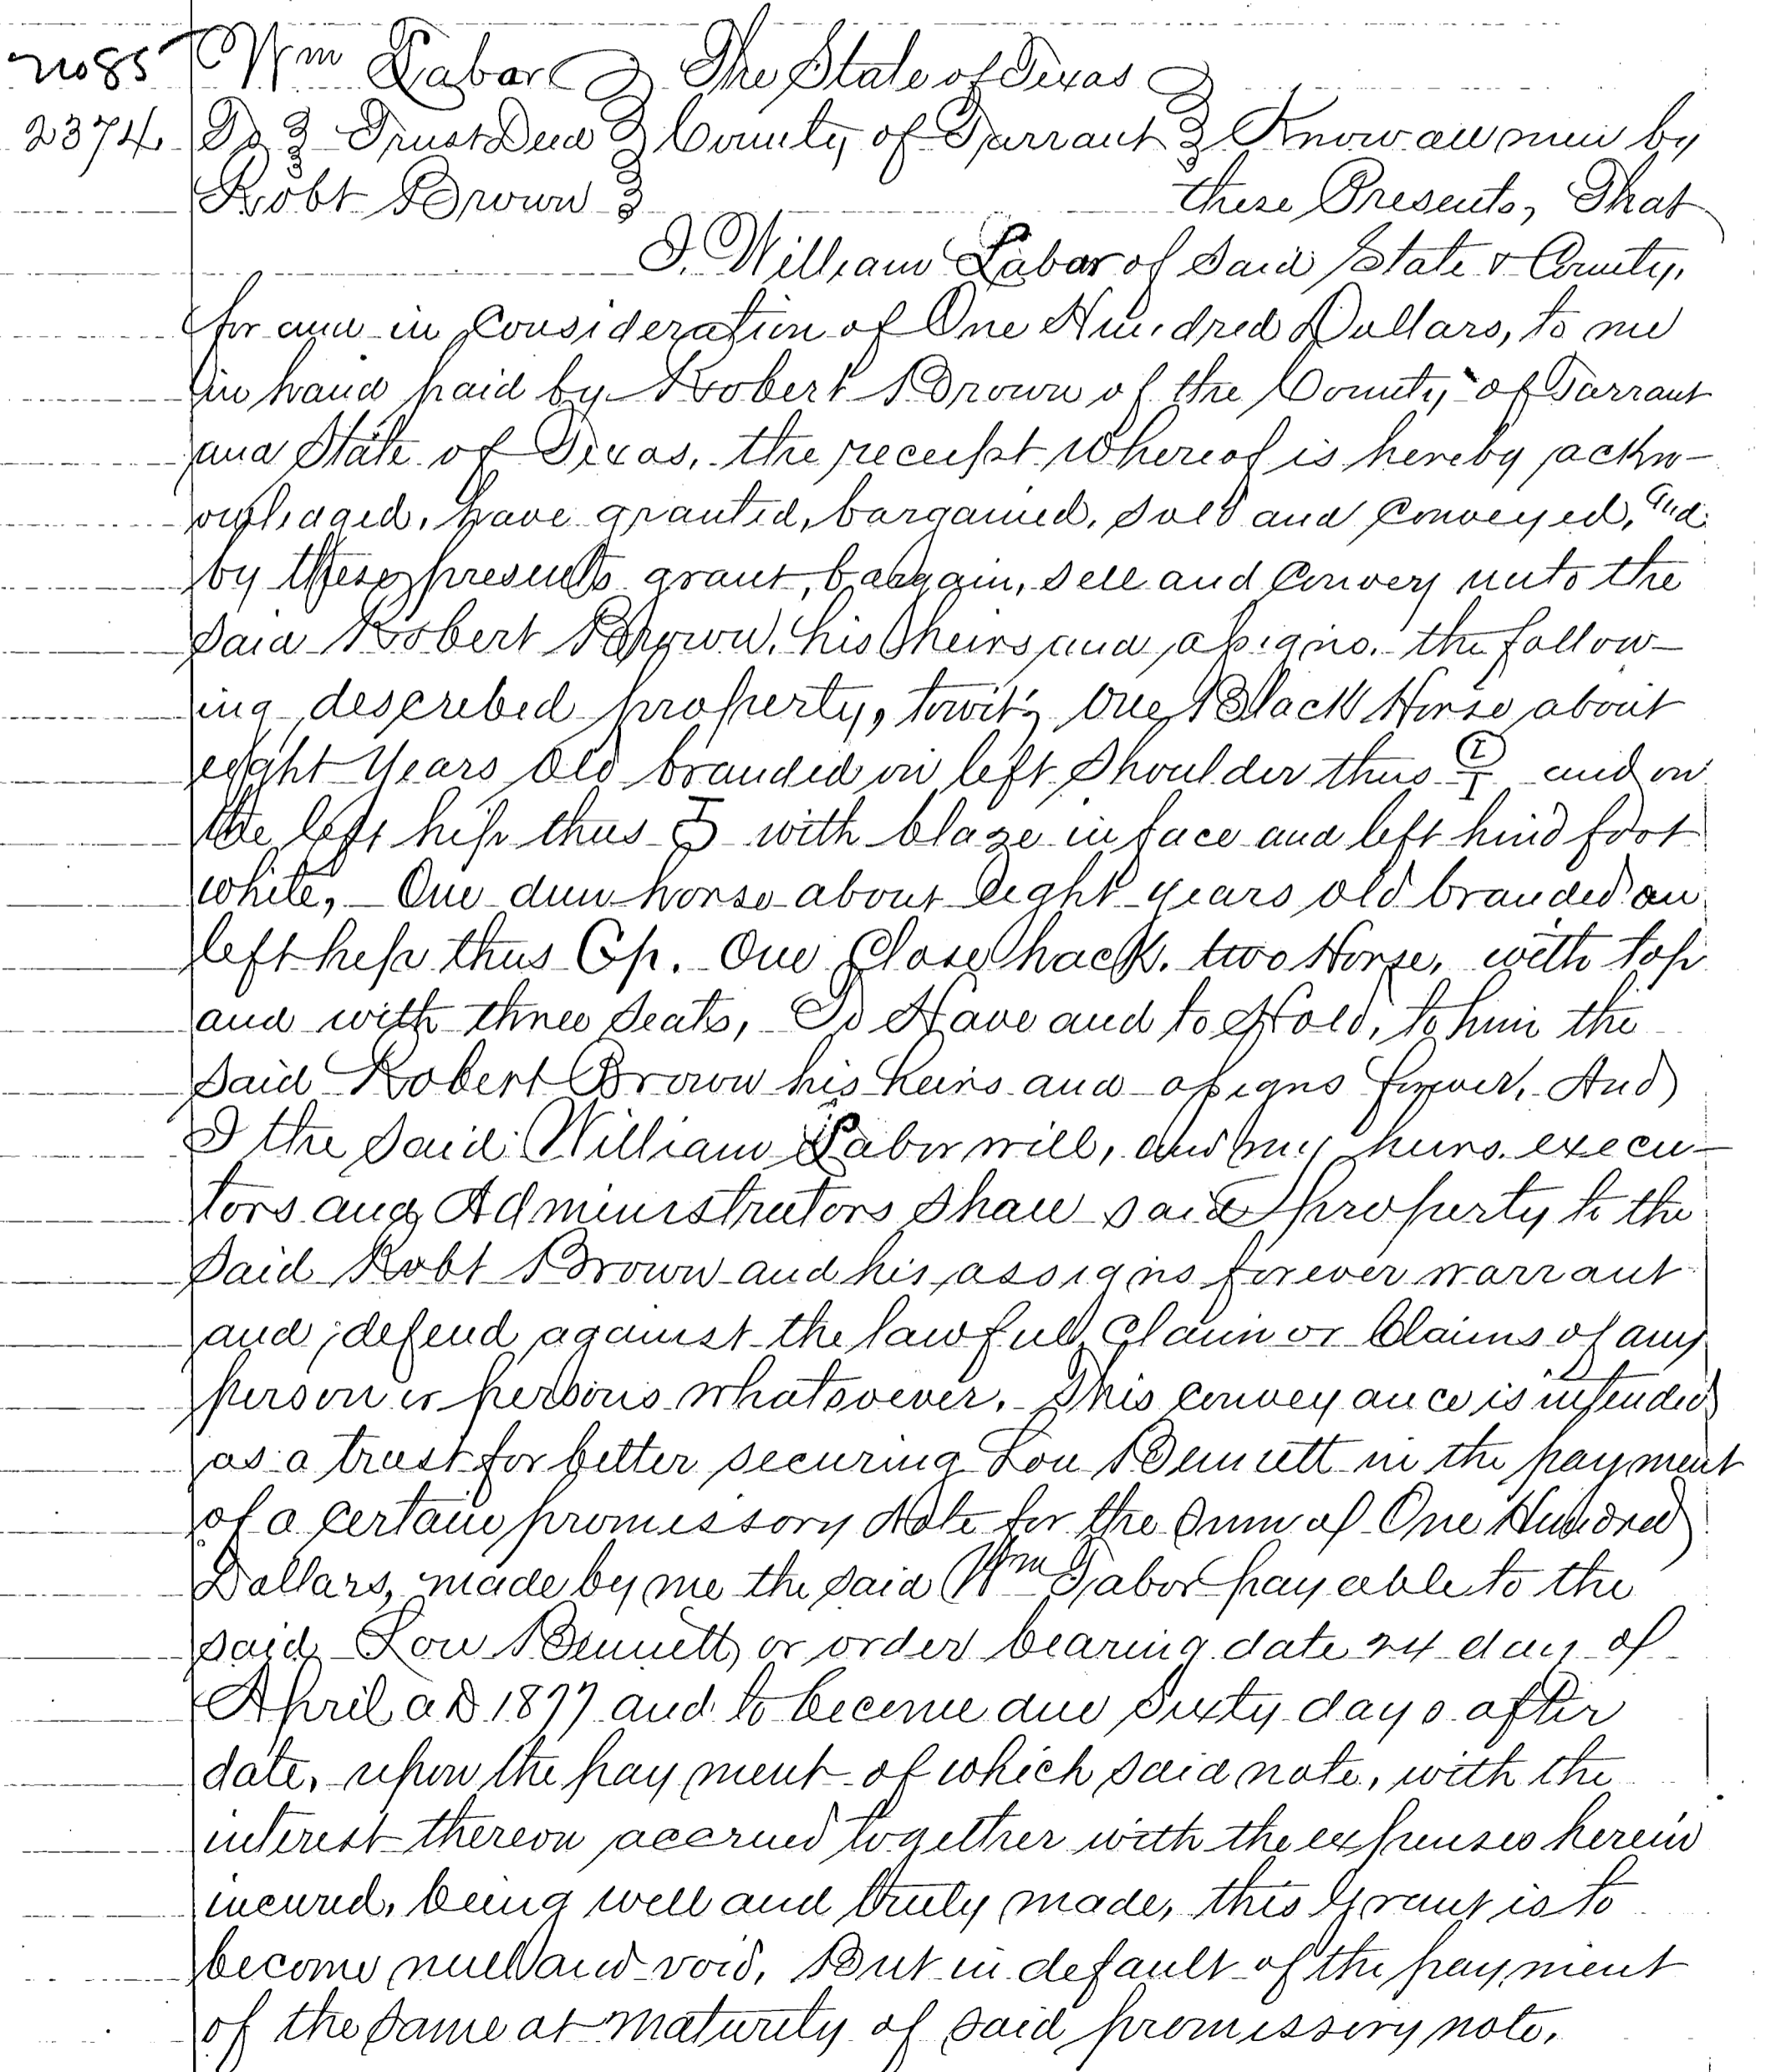 No 85 Wm Labor The State of Texas
2374 To Trust Deed County of Tarrant Know all men by
Robt Brown these Presents, That
I. William Labor of Said State & County,
for and in Consideration of One Hundred Dollars, to me
in hand paid by Robert Brown of the County of Tarrant
and State of Texas, the receipt whereof is hereby ackn-
owledged, have granted, bargained, sold and conveyed, and
by these presents grant, bargain, sell and Convey unto the
said Robert Brown, his heirs and assigns, the follow-
ing described property, towit; One Black Horse about
eight years old branded on left shoulder thus and on
the left hip thus with blaze in face and left hind foot
white, - One dun horse about eight years old branded on
left hip thus Cp. One Close hack, two Horse, with top
and with three seats, To Have and to Hold, to him the
said Robert Brown his heirs and assigns forever, And
I the said William Labor will, and my heirs, execu-
tors and Administrators shall said property to the
said Robt Brown and his assigns forever warrant
and defend against the lawful Claim or Claims of any
person or persons whatsoever. This conveyance is intended
as a trust for better securing Lou Bennett in the payment
of a certain promissory Note for the sum of One Hundred
Dollars, made by me the said Wm Tabor payable to the
said Lou Bennett or order bearing date 24 day of
April a D 1877 and to become due sixty days after
date, upon the payment of which said note, with the
interest thereon accrued together with the expenses herein
incured, being well and truly made, this Grant is to
become null and void, But in default of the payment
of the same at maturity of said promissory note,